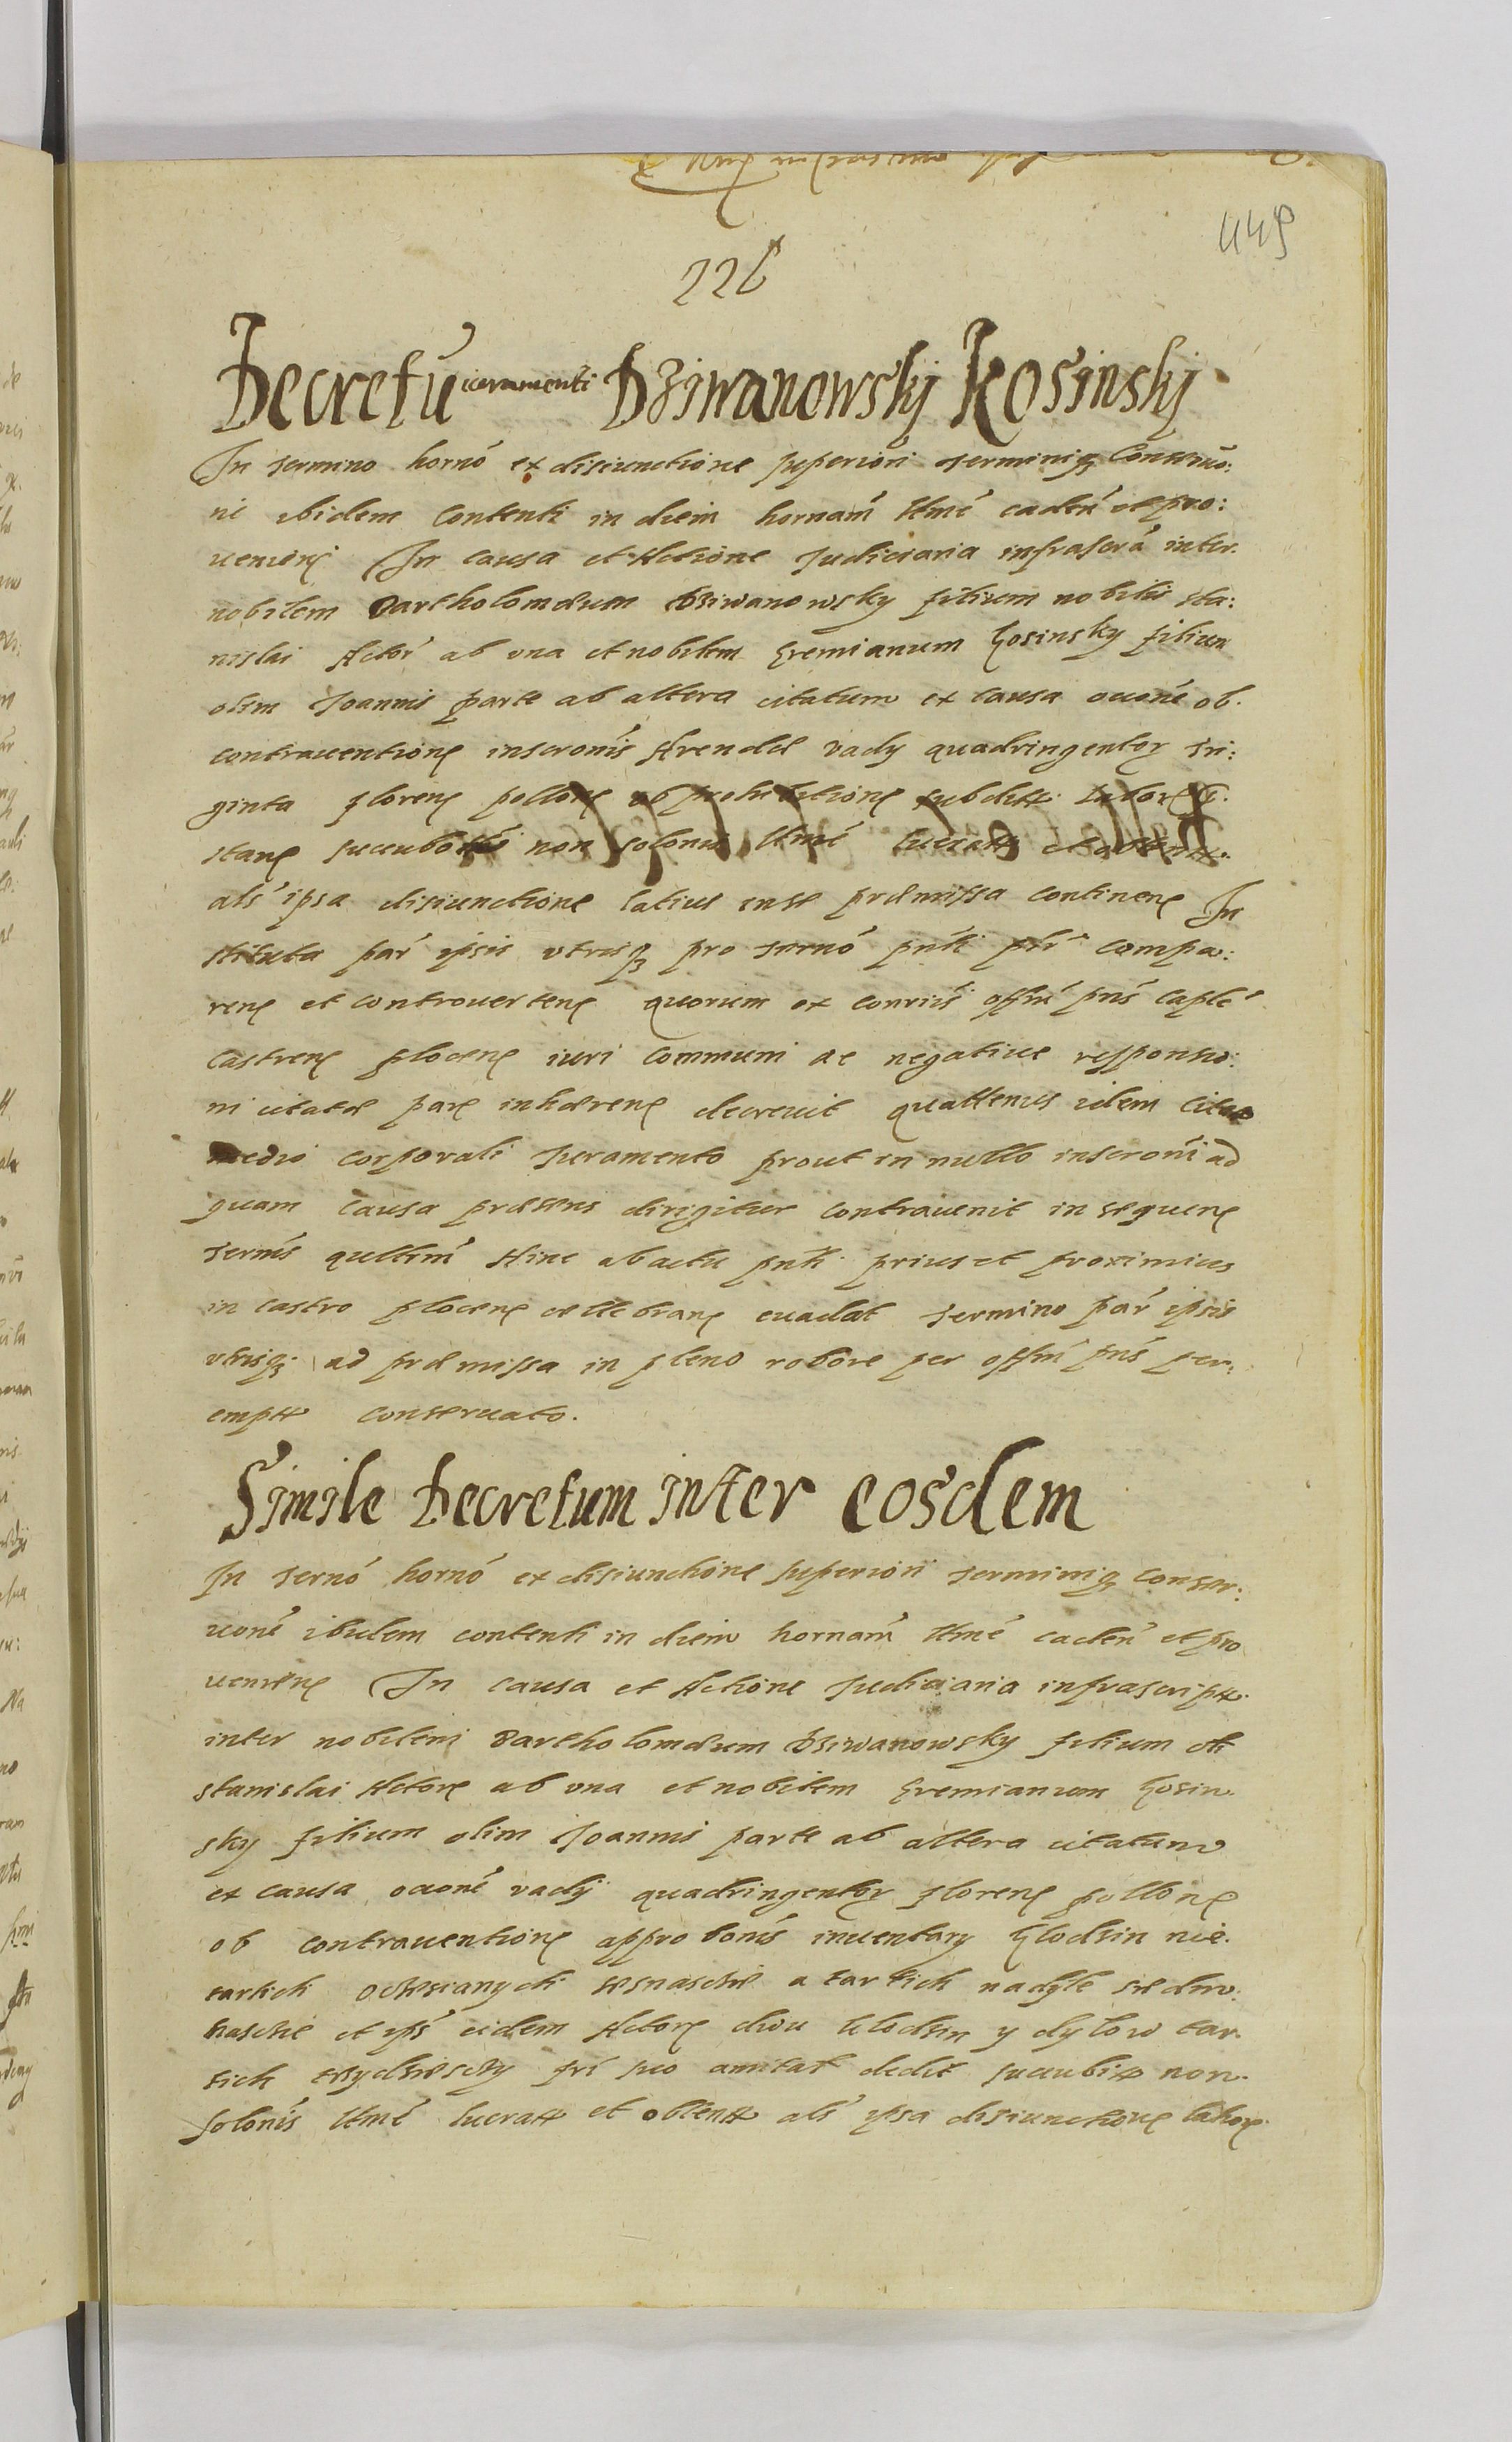 449
226
Decretū iuramenti Dziwanowskj Kosinskj
In termino hornó ex disiunctione superiori terminiq Conseruō:
ni ibidem Contenti in diem hornam̄ ltmé caden̄ et pro:
uenien In causa et Actione Judiciaria infrascrā inter
nobilem Bartholomæum Dziwanowsky filium nobilis Sta:
nislai Actor̄ ab vna et nobilem Eremianum Kosinsky filium
olim Joannis parte ab altera citatum ex causa ōcione ob.
contrauentione inscronis Arendæ vady quadringentor tri:
ginta floren pollon ob prohibitione subdit. labore
stan succubonis non solonis ltmé lucrat et obtent.
als ipsa disiunctione latius in se præmissa continen In
stituta par ipsis vtrisq pro termō pnti ptr compa:
ren et controuerten quorum ex conrūs offm pns caplē
Castren plocen iuri communi ac negatiue responsio:
ni citatæ par inhæren decreuit quattenus idem Citat
medio corporali iuramento prout in nullo inscroni ad
quam causa præsens dirigitur contrauenit in sequen
termis qultrm Hinc ab actu pnti prius et proximius
in castro plocen cellebran euadat termino par ipsis
vtrisq ad præmissa in pleno robore per offm pns per
empt conseruato.
Simile Decretum inter eosdem
In termō hornó ex disiunctione superiori terminiq conser:
uonē ibidem contenti in diem hornam̄ ltmé caden̄ et pro
uenien In causa et Actione Judiciaria infrascript.
inter nobilem Bartholomæum Dziwanowsky filium oli
Stanislai Actore ab vna et nobilem Eremianum Kosin
sky filium olim Joannis parte ab altera citatum
ex causa ōcione vadij quadringentor floren pollon
ob contrauentione approbonis inuentary Klodzin nie.
tartich ochezianych sesnascie a tartich nadyle siedm:
nascie et ips eidem Actore dwu klodzin y dylow tar.
tich trzydziesczy fri suo amitat dedit succubit non
solonis ltmé lucrat et obtent als ipsa disiunctione latiore